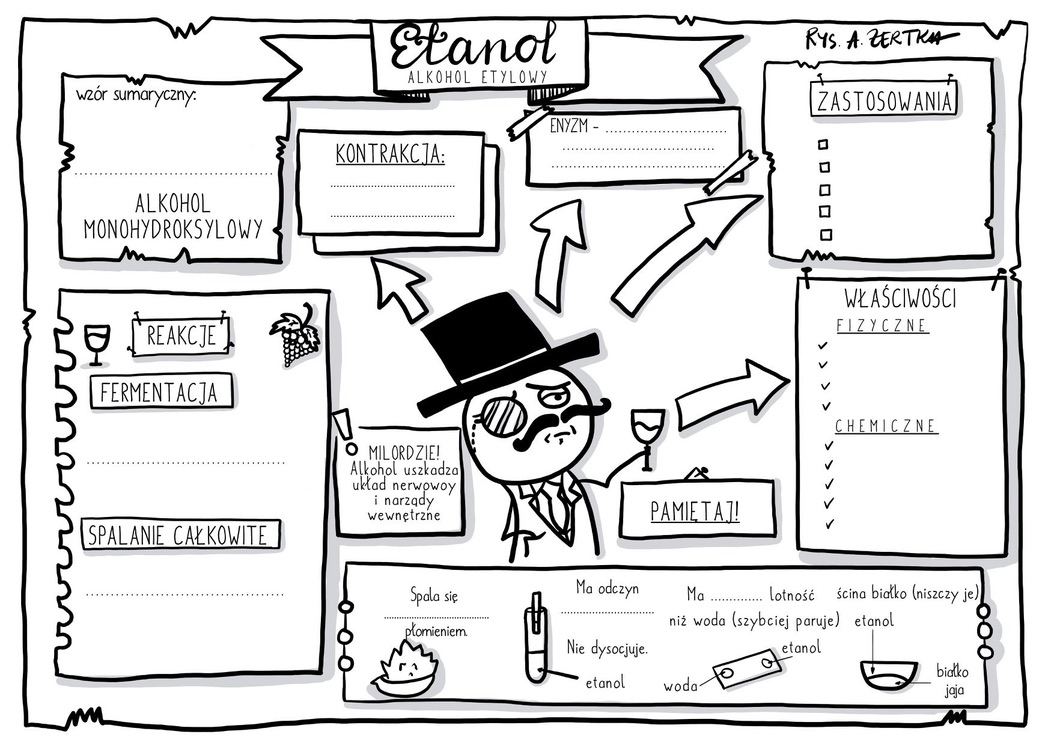 Etanol
ALKOHOL ETYLOWY
RYS. A. ŻERTKA
wzór sumaryczny:
ALKOHOL
MONOHYDROKSYLOWY
KONTRAKCJA:
ENYZM - ..............................
ZASTOSOWANIA
WŁAŚCIWOŚCI
FIZYCZNE
CHEMICZNE
REAKCJE
FERMENTACJA
SPALANIE CAŁKOWITE
MILORDZIE!
Alkohol uszkadza
układ nerwowoy
i narządy
wewnętrzne
PAMIĘTAJ!
Spala się
..............................
płomieniem.
Ma odczyn
..............................
Nie dysocjuje.
etanol
Ma ............. lotność
niż woda (szybciej paruje)
etanol
woda
ścina białko (niszczy je)
etanol
białko
jaja